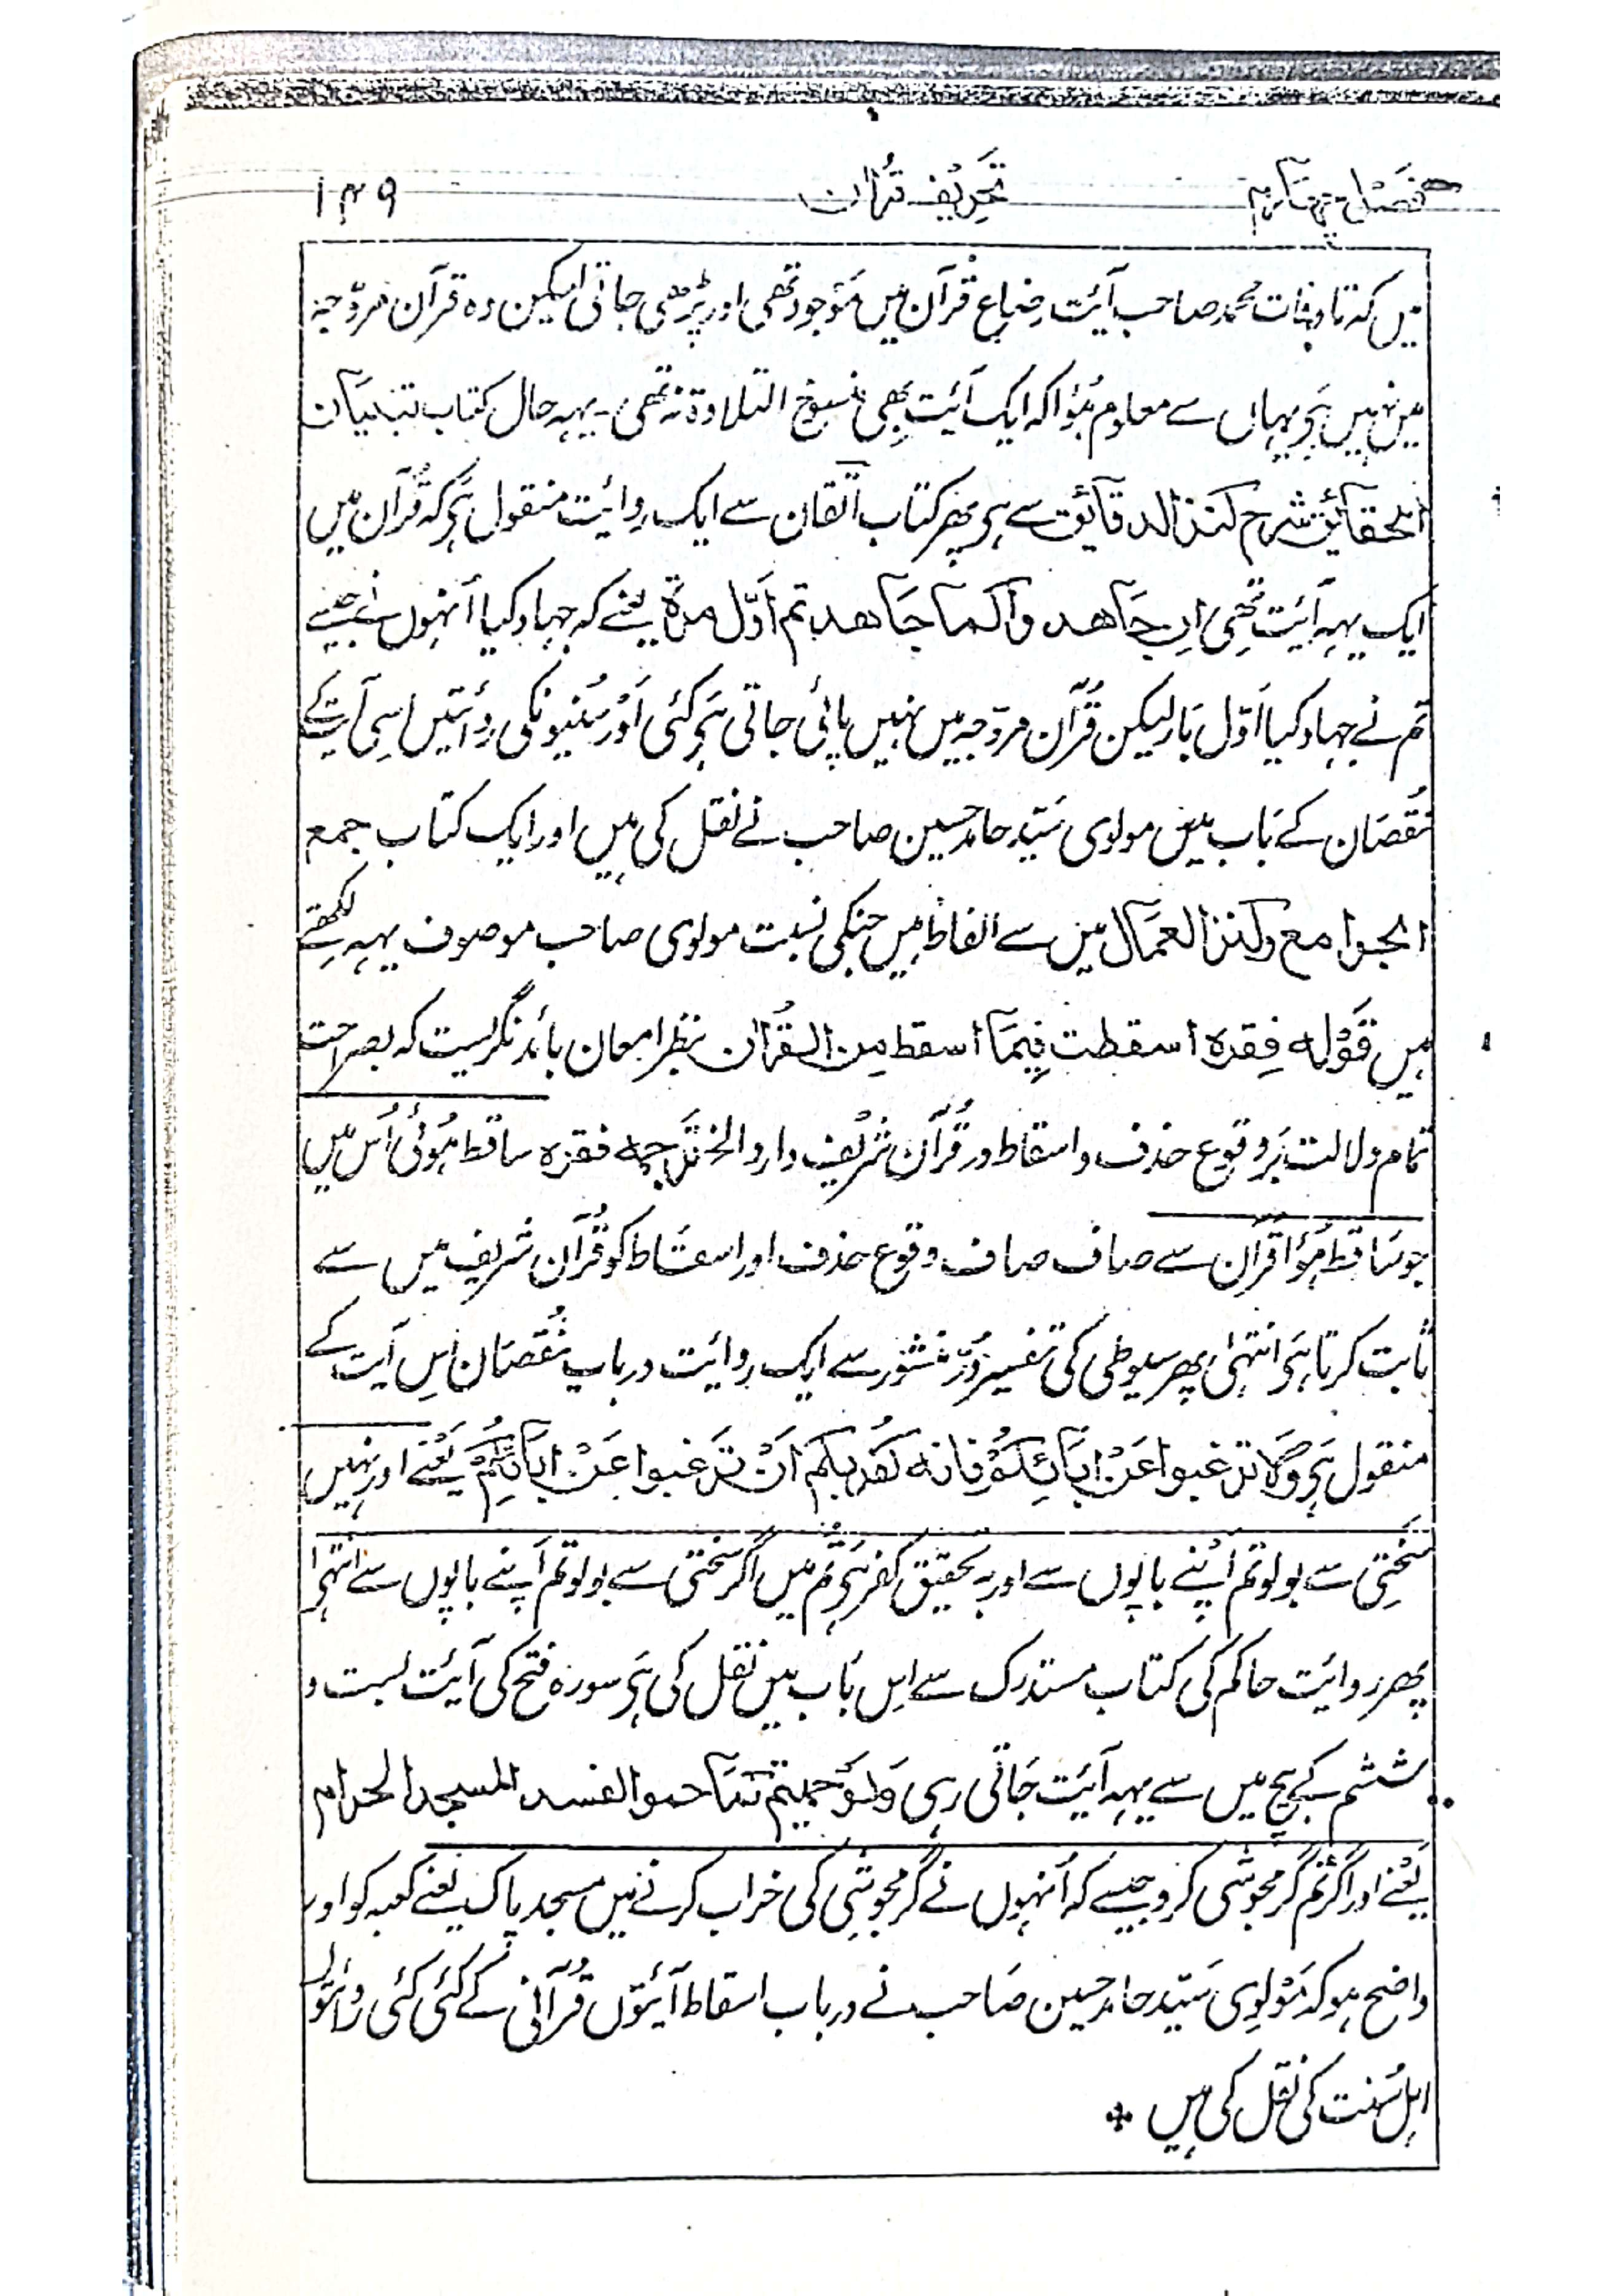 فصل چہارم تحریف قرآن ۱۴۹
ہیں کہ تا وفات محمد صاحب آیت رضاع قرآن میں موجود تھی اور پڑھی جاتی لیکن وہ قرآن مروّجہ
میں نہیں ہَی یہاں سے معلوم ہُؤا کہ ایک آیَت بھی منسوخ التلاوة نہ تھی۔ یہہ حال کتاب تبیَان
الحقائق شرح کنز الدقایق سے ہی پھر کتاب اتقان سے ایک رِوائت منقول ہَی کہ قُرآن میں
ایک یہہ آیَت تھی ان جَاهدوا كما جَاهدتم اَوّل مرّة یعنے کہ جہاد کیا اُنہوں نے جیسے
تم نے جہاد کیا اَوّل بَار لیکن قُرآن مروّجہ میں نہیں پائی جاتی ہَی کئی اَور سُنیونکی رِوائتیں اِسی آیت کے
نُقصَان کے بَاب میں مولوی سَیّد حامد حسین صاحب نے نقل کی ہیں اور ایک کتاب جمع
الجوامع وکنز العمَّال میں سے الفاظ ہیں جنکی نسبت مولوی صاحب موصوف یہہ لکھتے
ہیں قَوْله فِقرہ اسقطت فِيمَا اسقط مِن القُرآن بنظر امعان بائد نگریست کہ بصراحت
تمام دلالت بَر وقوع حذف و اسقاط در قُرآن شریف دارد الخ ترَجمہ فقرہ ساقط ہُوئی اُس میں
جو سَاقط ہُؤا قُرآن سے صاف صاف وقوع حذف اور اسقاط کو قُرآن شریف میں سے
ثابت کرتا ہَی انتہیٰ پھر سیوطی کی تفسیر دُرّ منثور سے ایک روائیت در باب نُقصَان اِس آیَت کے
منقول ہَی وَلَا ترغبوا عَنْ ابَآئِكُمْ فانه كفر بكم اَنْ تَرغبوا عَنْ ابَآئِكُمْ یَعْنے اور نہیں
سَختی سے بولو تم اَپنے باپوں سے اور بہ تحقیق کفر ہَی تُم میں اگر سَختی سے بولو تم اَپنے باپوں سے انتہیٰ
پھر روایَت حاکم کی کتاب مستدرک سے اِس بَاب میں نقل کی ہَی سورہ فتح کی آیَت بست و
ششم کے بیچ میں سے یہہ آیَت جَاتی رہی وَلَوْ حميتم كمَا حموا لفسد المسجد الحرام
یَعْنے اور اگر تم گرمجوشی کرو جیسے کہ اُنہوں نے گرمجوشِی کی خراب کرنے میں مسجد پاک یعنے کعبہ کو اور
واضح ہو کہ مَوْلوِی سَیّد حامد حسین صَاحب نے در باب اسقاط آیَتوں قُرآنی کے کئی کئی رِوائتوں
اہل سُنت کی نقل کی ہیں *